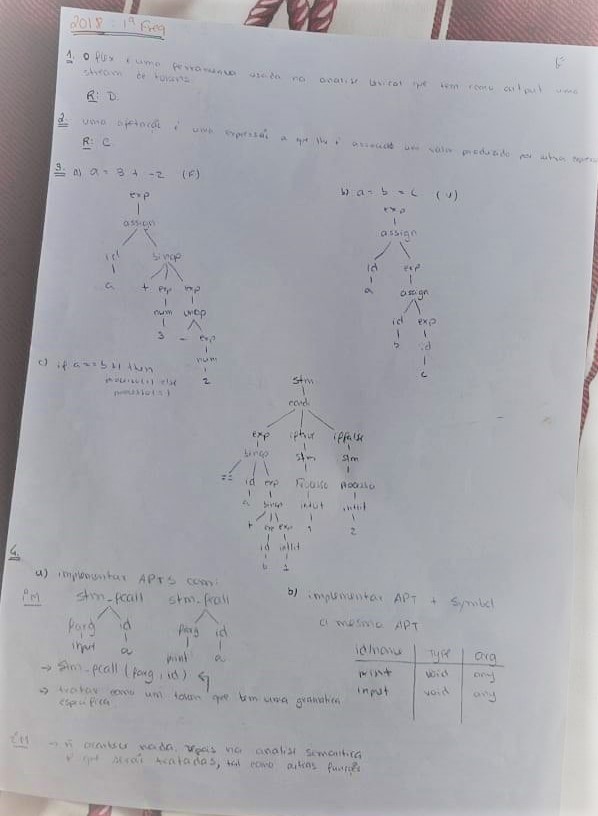 2018: 1ª Freq
1. O flex é uma ferramenta usada na analise lexical que tem como output uma
stream de tokens.
R: D.
2. uma afetação é uma expressão a que lhe é associado um valor produzido por outra
R: C.
3. a) a = 3 + -2 (F)
b) a = b = c (V)
exp
assign
id sinop
a + exp exp
num unop
3 - exp
num
2
exp
assign
id exp
a assign
id exp
b id
c
c) if a == b+1 then
else
stm
cond
exp iftrue iffalse
binop stm stm
== id exp
a binop intlit intlit
+ exp exp 1 2
id intlit
b 1
4.
a) implementar APTS com:
stm_pcall stm_pcall
parg id parg id
input a print a
→ stm_pcall (parg, id)
→ tratar como um token que tem uma gramatica
especifica.
b) implementar APT + Symbol
a mesma APT
idname type arg
print void any
input void any
→ ñ acontece nada, depois na analise semantica
é que serão tratadas, tal como outras funções